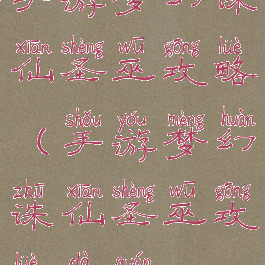 手游梦幻诛
xiān shèng wū gōng lüè
仙圣巫攻略
shǒu yóu mèng huàn
（手游梦幻
zhū xiān shèng wū gōng
诛仙圣巫攻
lüè dà quán